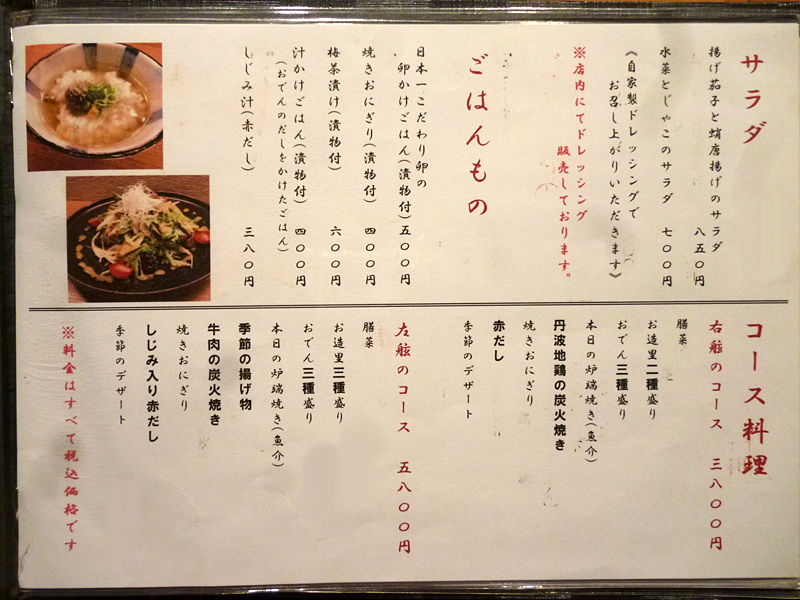 サラダ
揚げ茄子と蛸唐揚げのサラダ 八五〇円
水菜とじゃこのサラダ 七〇〇円
《自家製ドレッシングで
お召し上がりいただきます》
※店内にてドレッシング
販売しております。
ごはんもの
日本一こだわり卵の
卵かけごはん(漬物付) 五〇〇円
焼きおにぎり(漬物付) 四〇〇円
梅茶漬け(漬物付) 六〇〇円
汁かけごはん(漬物付) 四〇〇円
(おでんのだしをかけたごはん)
しじみ汁(赤だし) 三八〇円
コース料理
右舷のコース 三八〇〇円
膳菜
お造里二種盛り
おでん三種盛り
本日の炉端焼き(魚介)
丹波地鶏の炭火焼き
焼きおにぎり
赤だし
季節のデザート
左舷のコース 五八〇〇円
膳菜
お造里三種盛り
おでん三種盛り
本日の炉端焼き(魚介)
季節の揚げ物
牛肉の炭火焼き
焼きおにぎり
しじみ入り赤だし
季節のデザート
※料金はすべて税込価格です